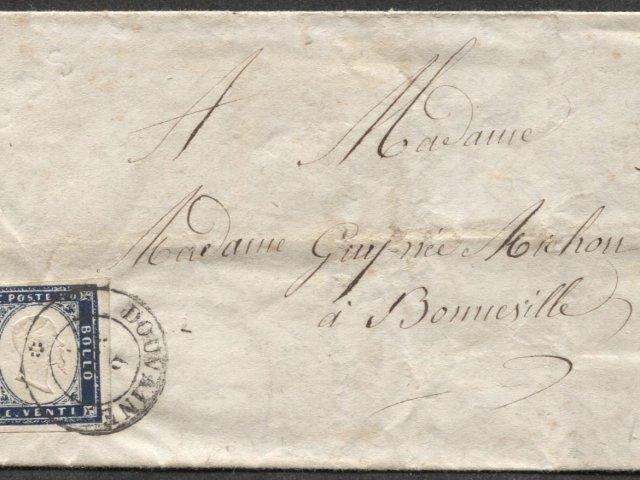 A Madame
Madame Guy-née Michon
à Bonneville
C. POSTE 20
BOLLO
C. VENTI
DOUVAINE